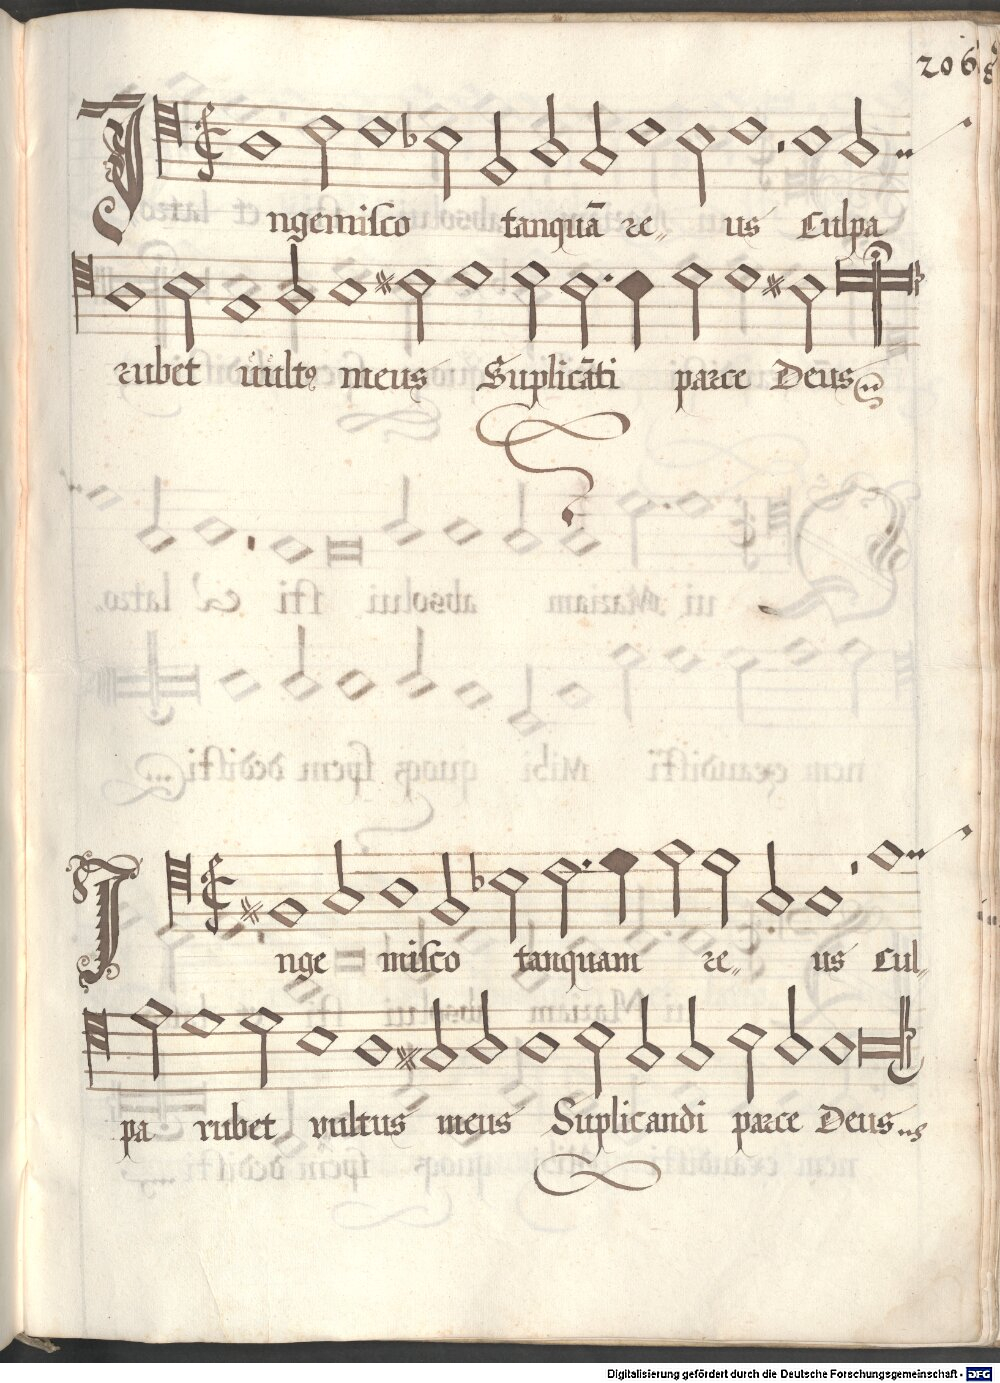 206
Ingemisco tanquā re„ us Culpa
rubet vultꝯ meus Suplicāti parce Deus
Inge misco tanquam re„ us Cul„
pa rubet vultus meus Suplicandi parce Deus
Digitalisierung gefördert durch die Deutsche Forschungsgemeinschaft - DFG